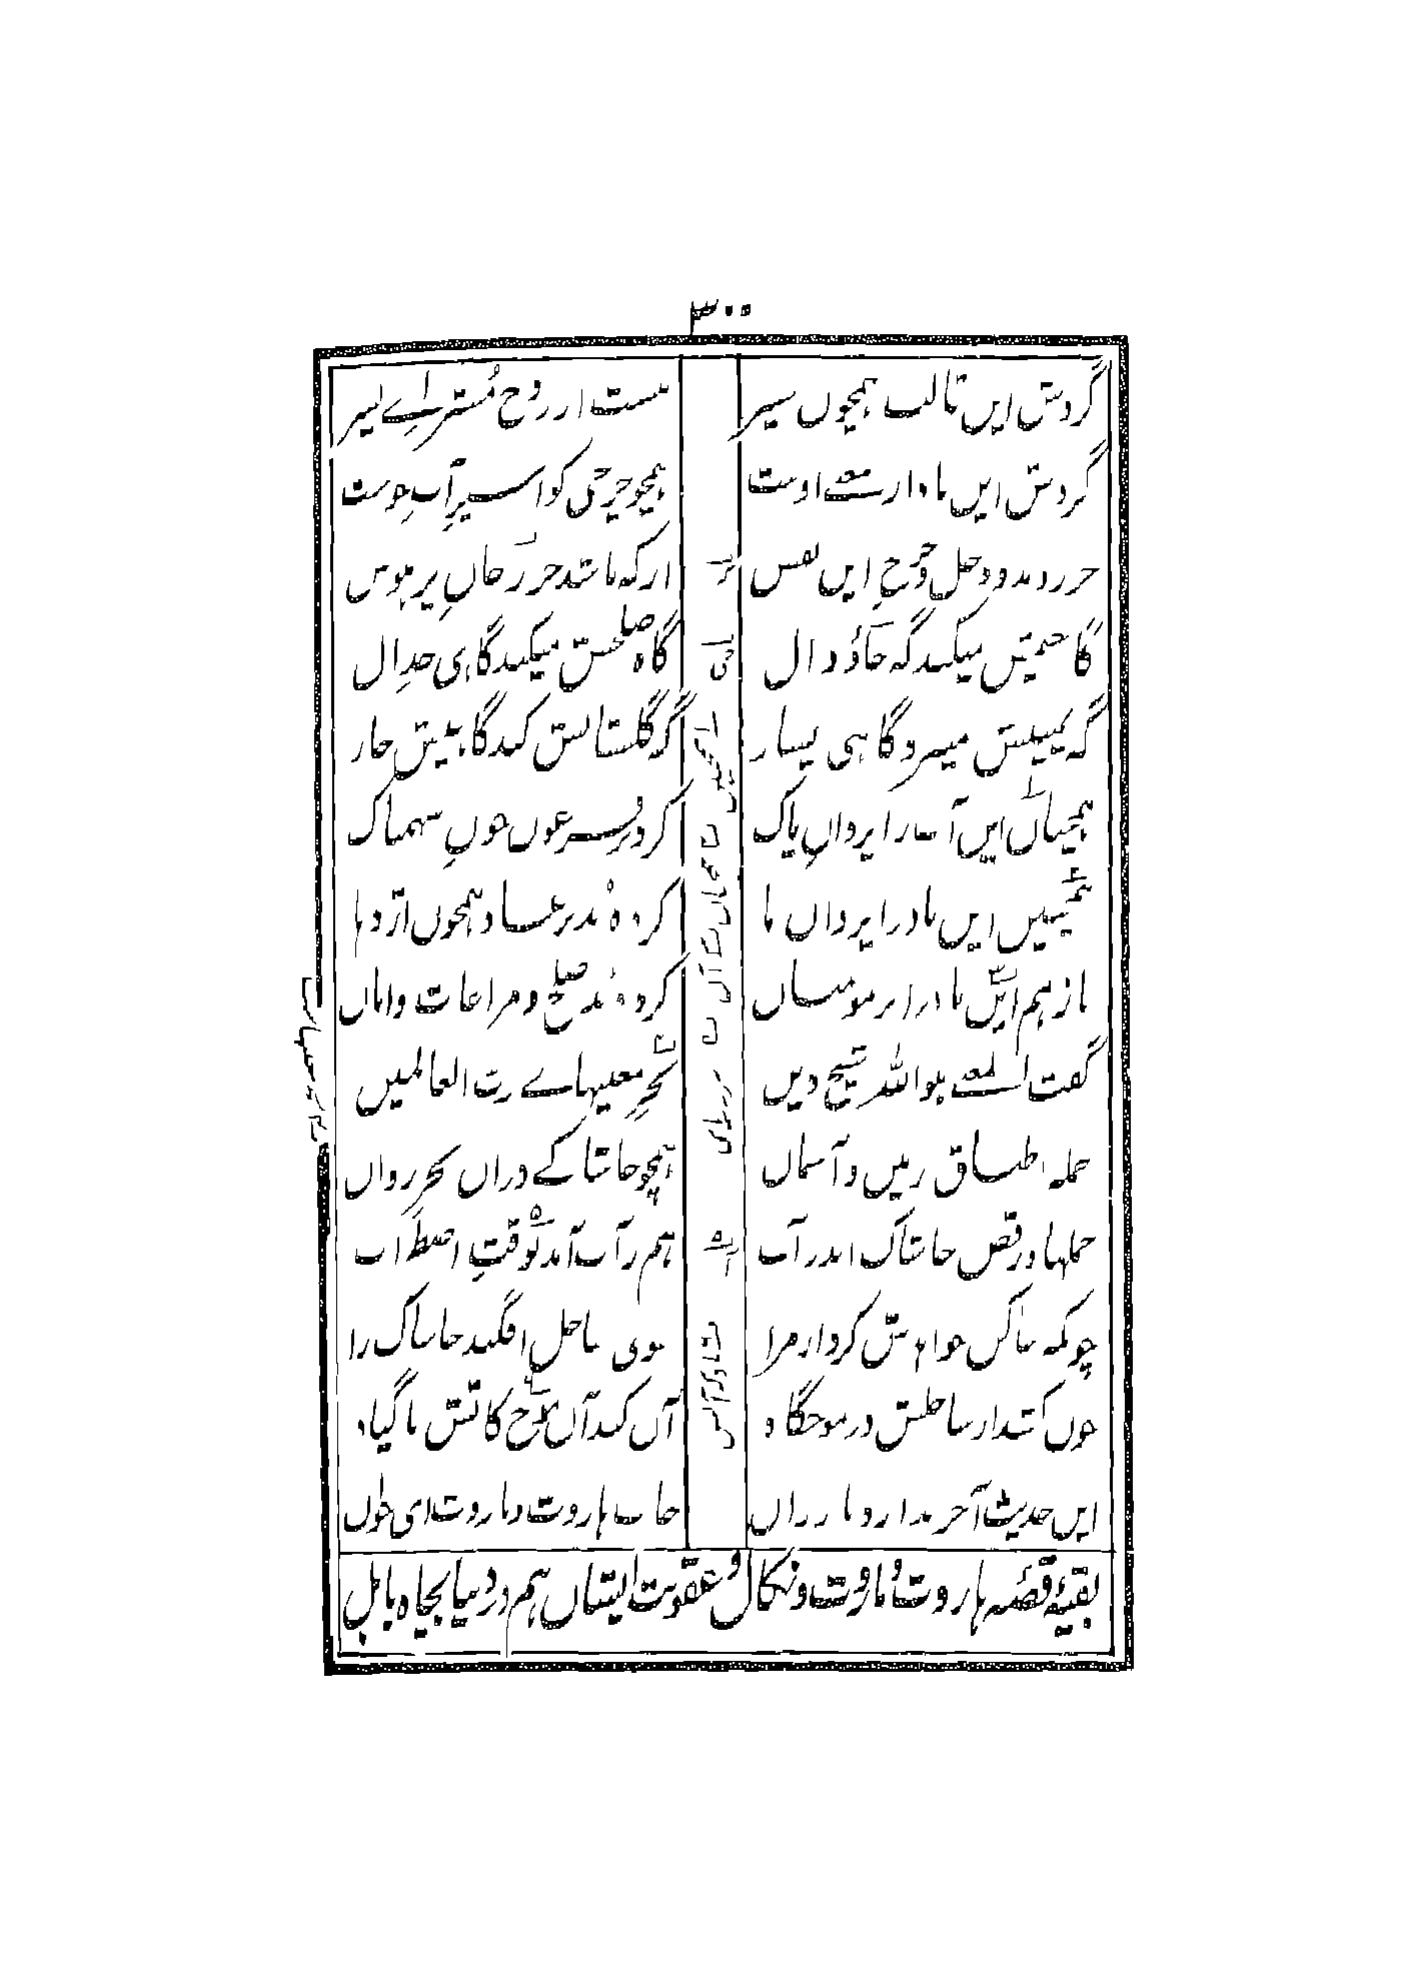 ۳۰۰
گردش این قالب همچوں سپر
هست از روح مستر اے پسر
گردش ایں باد از معنے اوست
همچو چرخی کو اسیر آب جوست
جزر و مد و دخل و خرج ایں نفس
از که باشد جز ز جان پر هوس
گاه جیمش میکند گه حاؤ دال
گاه صلحش میکند گاهی جدال
گه یمینش میبرد گاهی یسار
گه گلستانش کند گاهیش خار
همچناں ایں آب را یزدان پاک
کرد بر فرعوں خون سهمناک
همچنیں ایں باد را یزداں ما
کرده بد بر عاد همچوں اژدها
باز هم ایں باد را بر مومناں
کرده بد صلح و مراعات و اماں
گفت المعنے هو الله شیخ دیں
بحر معنیهاے رب العالمیں
جمله اطباق زمیں و آسماں
همچو خاشاکے دراں بحر رواں
حملها و رقص خاشاک اندر آب
هم ز آب آمد بوقت اضطراب
چونکه ساکن خواهدش کرد از مرا
سوی ساحل افگند خاشاک را
چوں کشد از ساحلش در موجگاه
آں کند آں موج کاتش با گیاه
ایں حدیث آخر ندارد باز راں
جانب هاروت و ماروت ای جواں
بقیۂ قصۂ هاروت و ماروت و نکال و عقوبت ایشاں هم در دنیا بچاه بابل